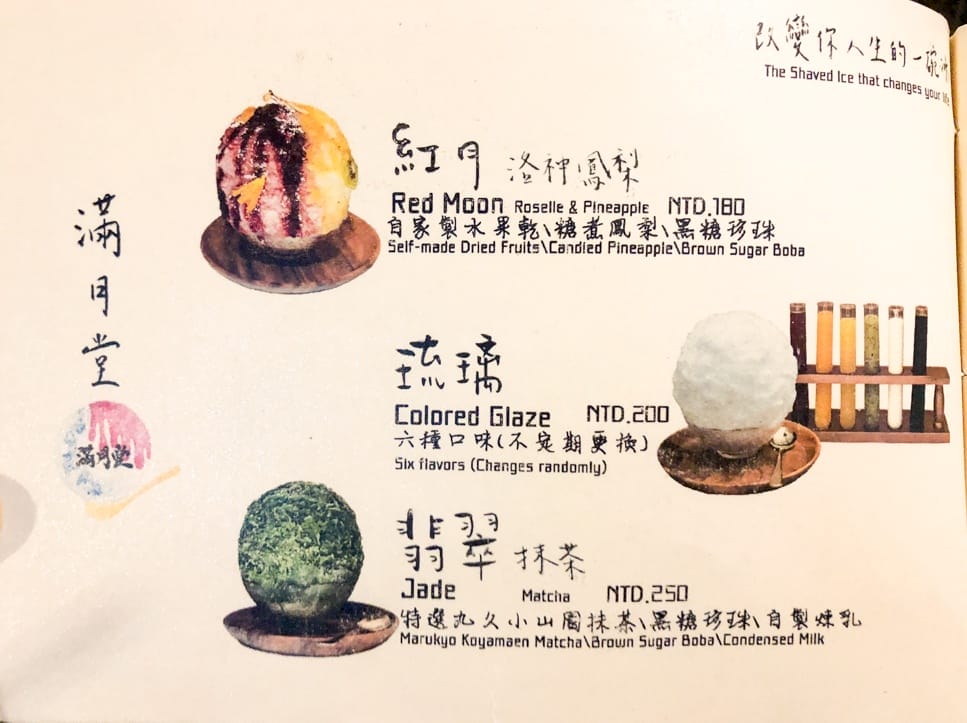 改變你人生的一碗冰
The Shaved Ice that changes your life
滿月堂
滿月堂
紅月 洛神鳳梨
Red Moon Roselle & Pineapple NTD.180
自家製水果乾\糖煮鳳梨\黑糖珍珠
Self-made Dried Fruits\Candied Pineapple\Brown Sugar Boba
琉璃
Colored Glaze NTD.200
六種口味(不定期更換)
Six flavors (Changes randomly)
翡翠 抹茶
Jade Matcha NTD.250
特選丸久小山園抹茶\黑糖珍珠\自製煉乳
Marukyo Koyamaen Matcha\Brown Sugar Boba\Condensed Milk